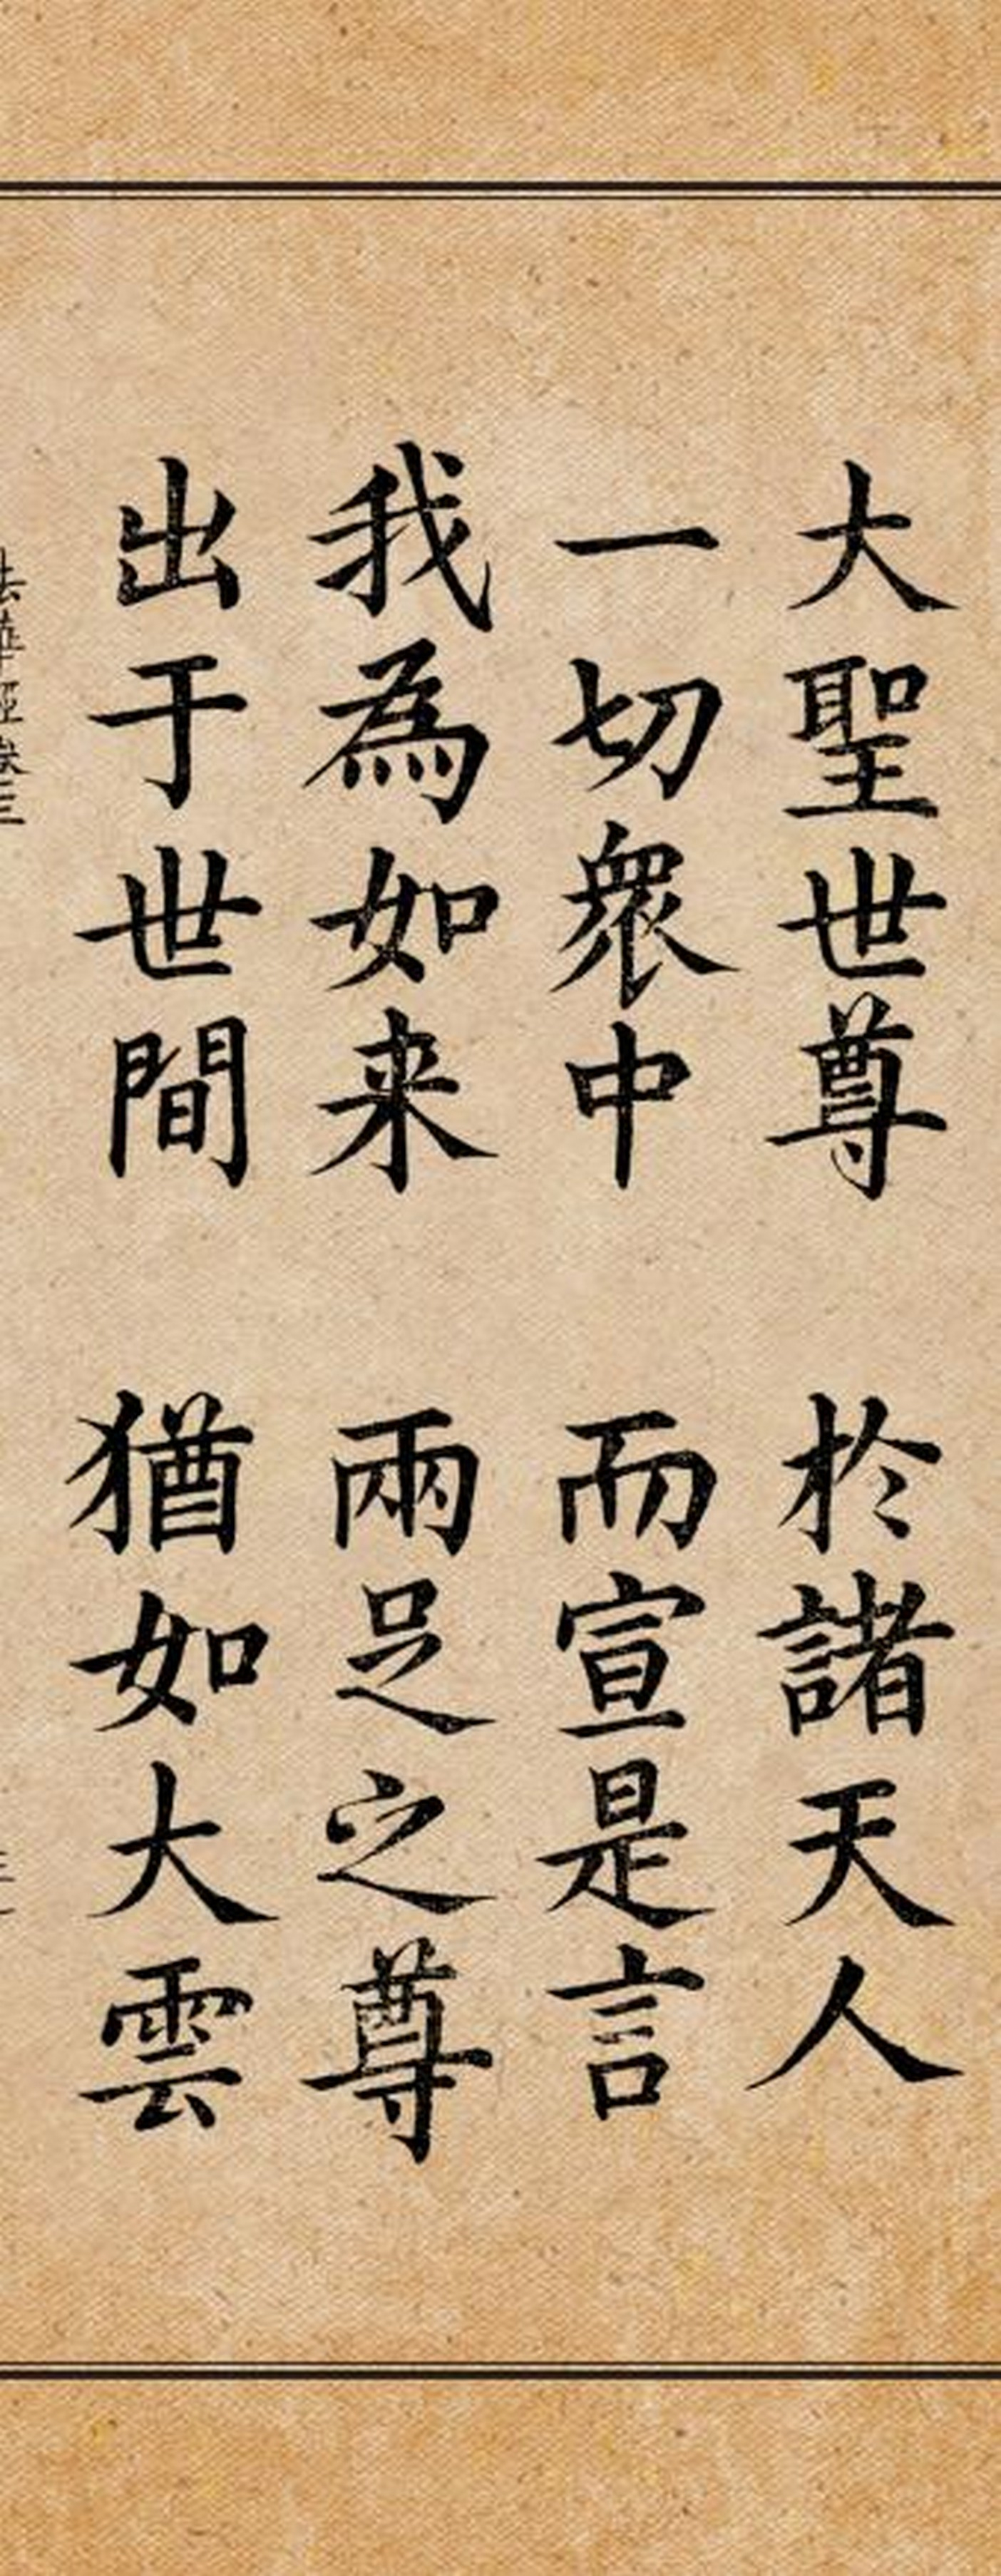 大聖世尊 於諸天人
一切衆中 而宣是言
我為如来 兩足之尊
出于世間 猶如大雲
法華經卷三